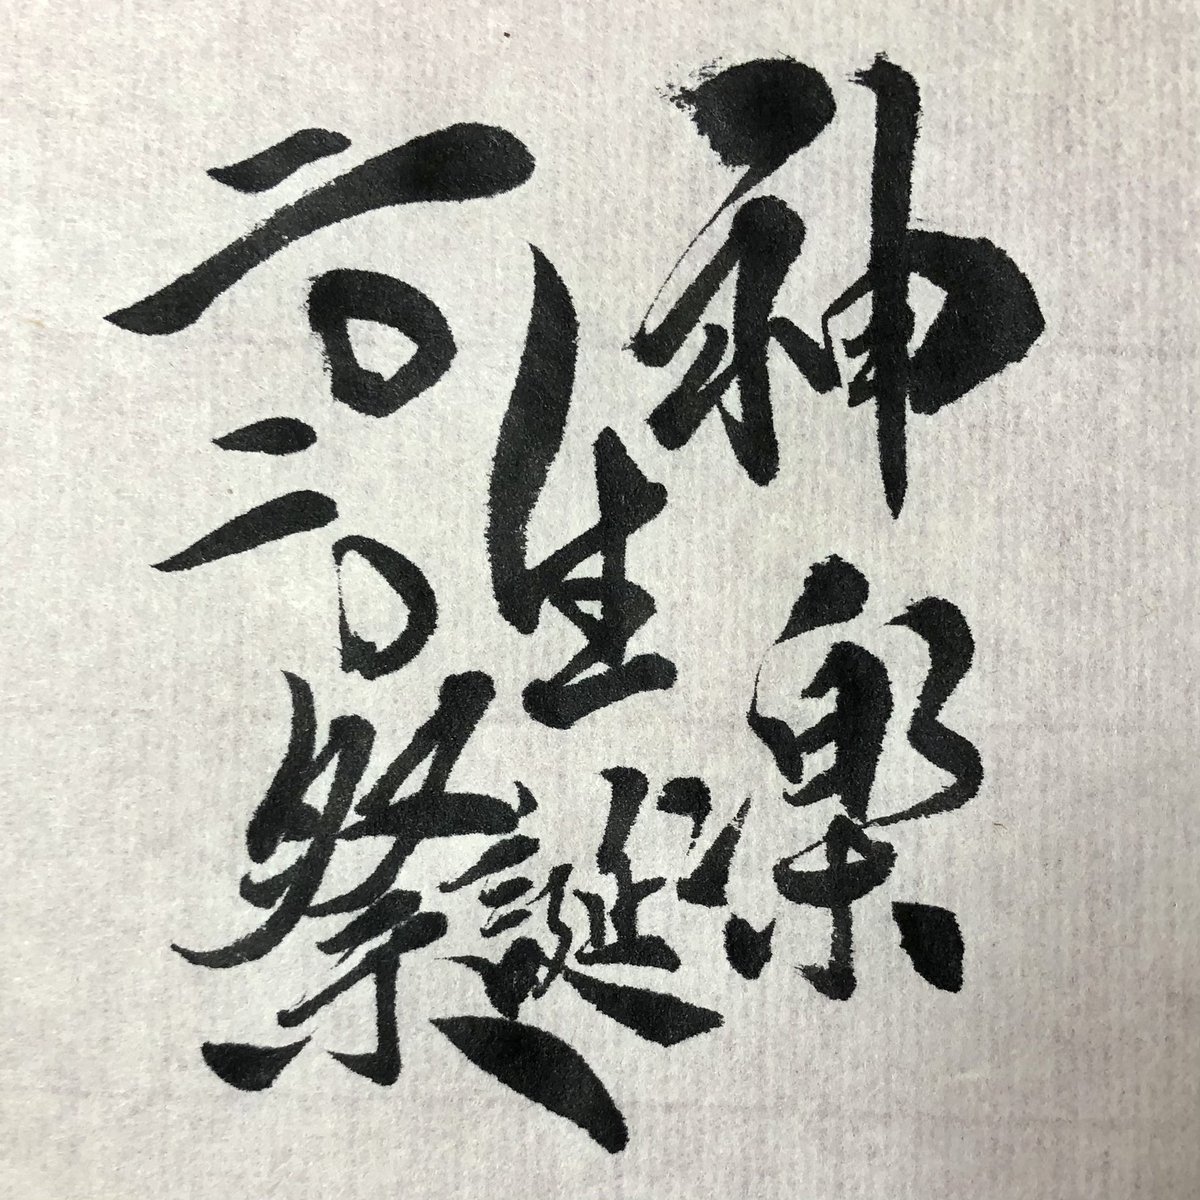 神楽
生誕
二〇二〇
祭